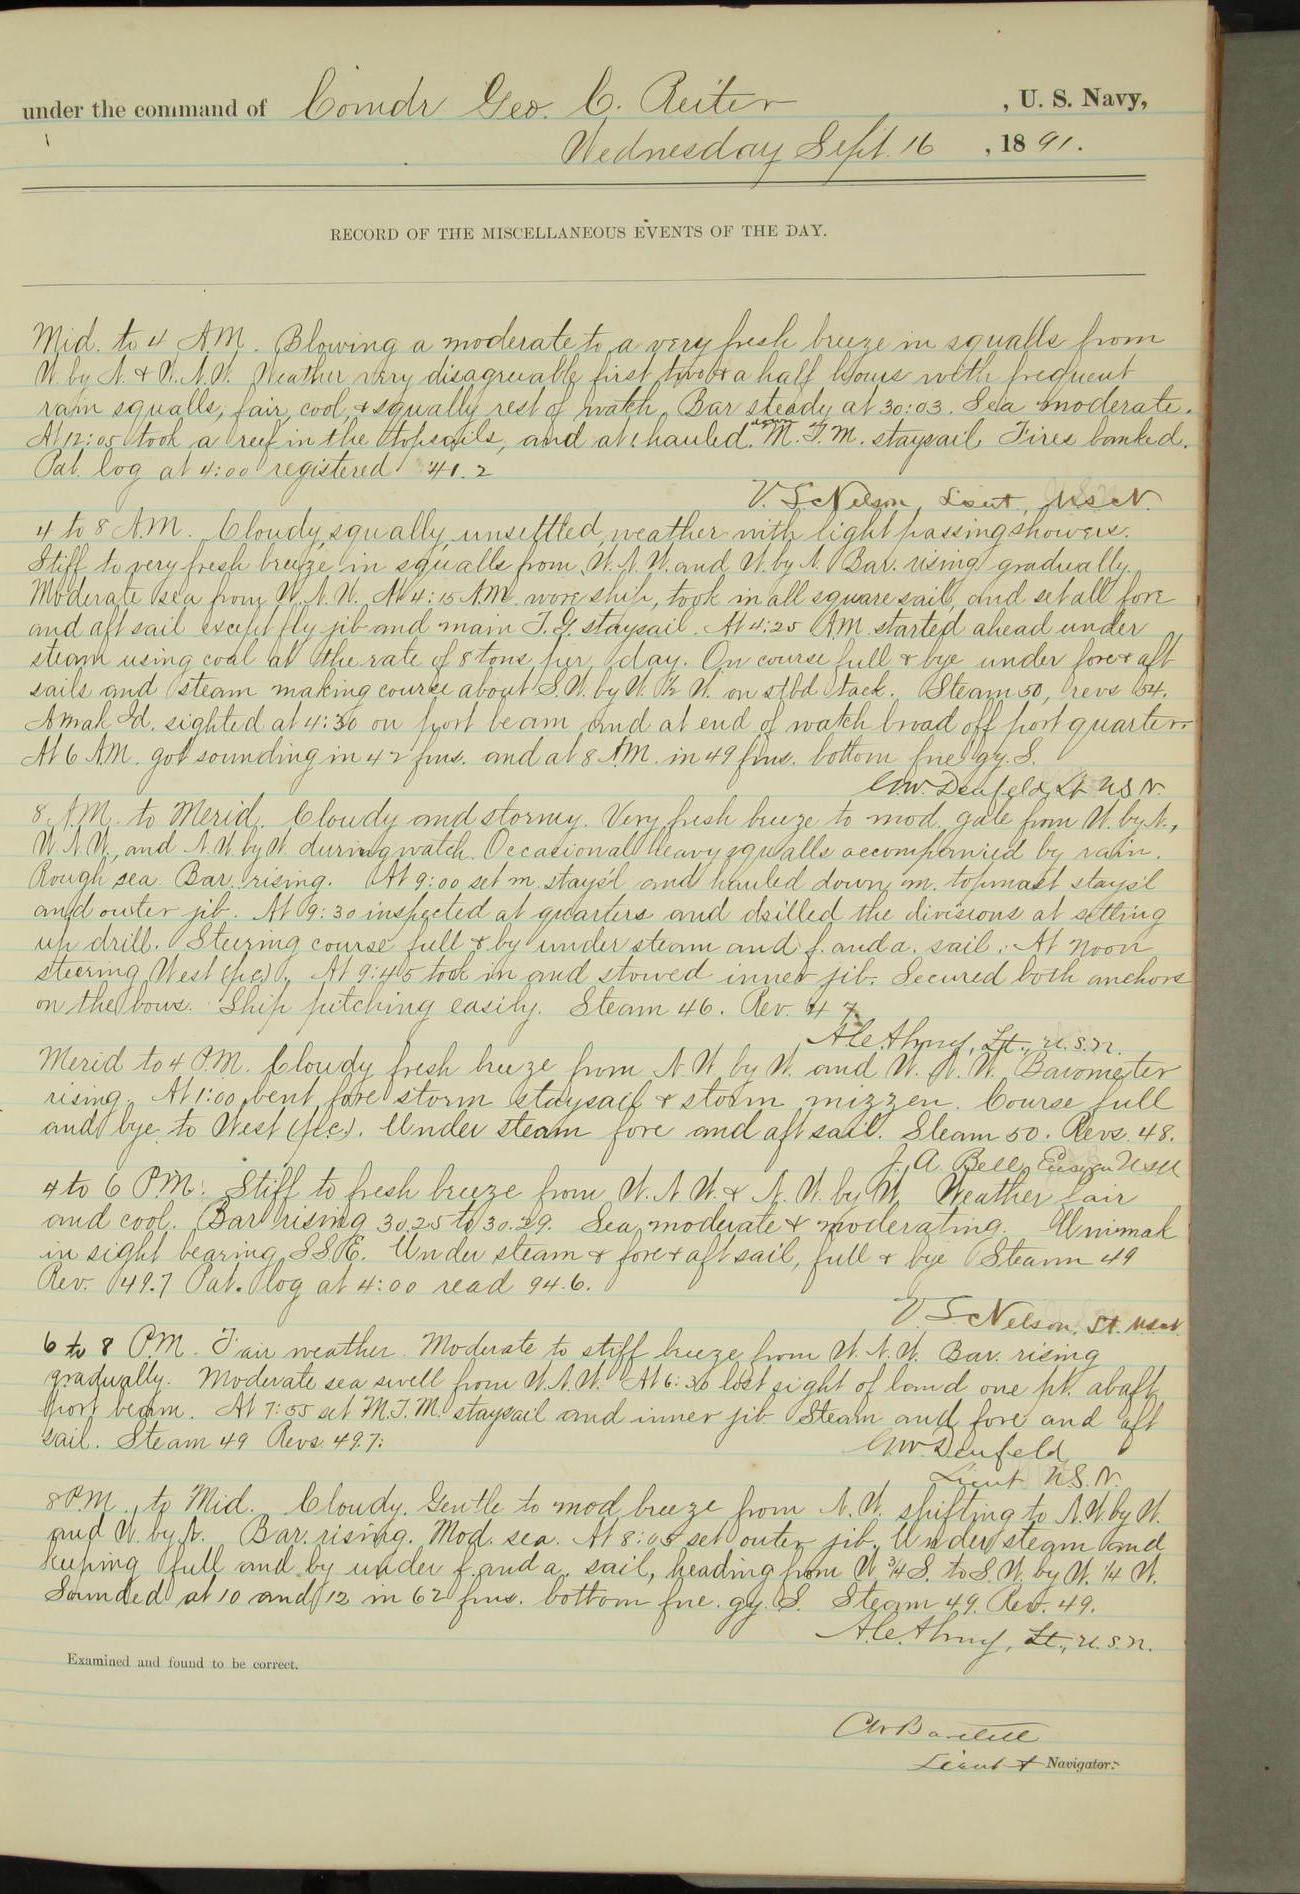 under the command of Comdr Geo. C. Reiter , U. S. Navy,
Wednesday Sept. 16 , 1891.
RECORD OF THE MISCELLANEOUS EVENTS OF THE DAY.
Mid. to 4 A.M. Blowing a moderate to a very fresh breeze in squalls from
W. by N. & W.N.W. Weather very disagreeable first two & a half hours with frequent
rain squalls, fair, cool, & squally rest of watch. Bar steady at 30:03. Sea moderate.
At 12:05 took a reef in the topsails, and at 1 hauled down M.T.M. staysail Fires banked.
Pat. log at 4:00 registered 41.2
V. S. Nelson, Lieut, U.S.N.
4 to 8 A.M. Cloudy, squally, unsettled, weather with light passing showers.
Stiff to very fresh breeze in squalls from W.N.W. and W. by N. Bar. rising gradually.
Moderate sea from W.N.W. At 4:15 A.M. wore ship, took in all square sail, and set all fore
and aft sail except fly jib and main T.G. staysail. At 4:25 A.M. started ahead under
steam using coal at the rate of 8 tons per day. On course full & bye under fore & aft
sails and steam making course about S.W. by W. ½ W. on stbd tack. Steam 50, revs 54.
Amak Id. sighted at 4:30 on port beam and at end of watch broad off port quarter.
At 6 A.M. got sounding in 42 fms. and at 8 A.M. in 49 fms. bottom fne gy. S.
G.W. Denfeld, Lt U.S.N.
8 A.M. to Merid. Cloudy and stormy. Very fresh breeze to mod. gale from W. by N.,
W.N.W., and N.W. by W. during watch. Occasional heavy squalls accompanied by rain.
Rough sea. Bar. rising. At 9:00 set m. stays'l and hauled down m. topmast stays'l
and outer jib. At 9:30 inspected at quarters and drilled the divisions at setting
up drill. Steering course full & by under steam and f. and a. sail. At noon
steering West (p.c.). At 9:45 took in and stowed inner jib. Secured both anchors
on the bows. Ship pitching easily. Steam 46. Rev. 47.
A.C. Almy, Lt., U.S.N.
Merid to 4 P.M. Cloudy fresh breeze from N.W. by W. and W.N.W. Barometer
rising. At 1:00 bent fore storm staysail & storm mizzen. Course full
and bye to West (p.c.). Under steam fore and aft sail. Steam 50. Revs. 48.
J. A. Bell, Ensign USN
4 to 6 P.M. Stiff to fresh breeze from W.N.W. & N.W. by W. Weather fair
and cool. Bar rising 30.25 to 30.29. Sea moderate & moderating. Unimak
in sight bearing SSE. Under steam & fore & aft sail, full & bye Steam 49
Rev. 49.7 Pat. log at 4:00 read 94.6.
V. S. Nelson, Lt. U.S.N.
6 to 8 P.M. Fair weather. Moderate to stiff breeze from W.N.W. Bar. rising
gradually. Moderate sea swell from W.N.W. At 6:30 lost sight of land one pt. abaft
port beam. At 7:55 set M.T.M. staysail and inner jib Steam and fore and aft
sail. Steam 49 Revs 49.7.
G.W. Denfeld
Lieut U.S.N.
8 P.M. to Mid. Cloudy. Gentle to mod breeze from N.W. shifting to N.W. by W.
and W. by N. Bar. rising. Mod. sea. At 8:05 set outer jib. Under steam and
keeping full and by under f. and a. sail, heading from W. ¾ S. to S.W. by W. ¼ W.
Sounded at 10 and 12 in 62 fms. bottom fne. gy. S. Steam 49. Rev. 49.
A.C. Almy, Lt., U.S.N.
Examined and found to be correct.
CW Bartlett
Lieut & Navigator.